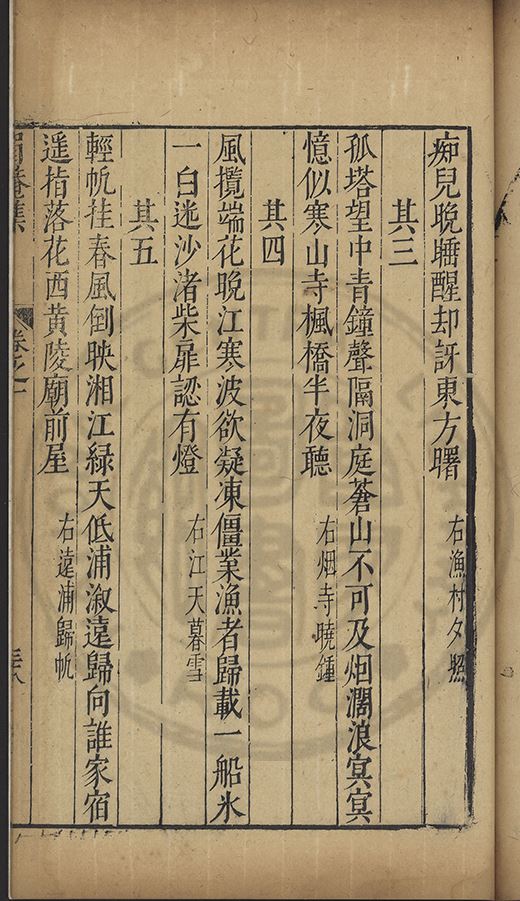 痴兒晚睡醒却訝東方曙　右漁村夕照
其三
孤塔望中青鐘聲隔洞庭蒼山不可及烟濶浪㝠㝠
憶似寒山寺楓橋半夜聽　右烟寺曉鍾
其四
風攪端花晚江寒波欲凝凍僵業漁者歸載一船氷
一白迷沙渚柴扉認有燈　右江天暮雪
其五
輕帆挂春風倒映湘江緑天低浦溆遠歸向誰家宿
遥指落花西黄陵廟前屋　右遠浦歸帆
菴集　卷之一